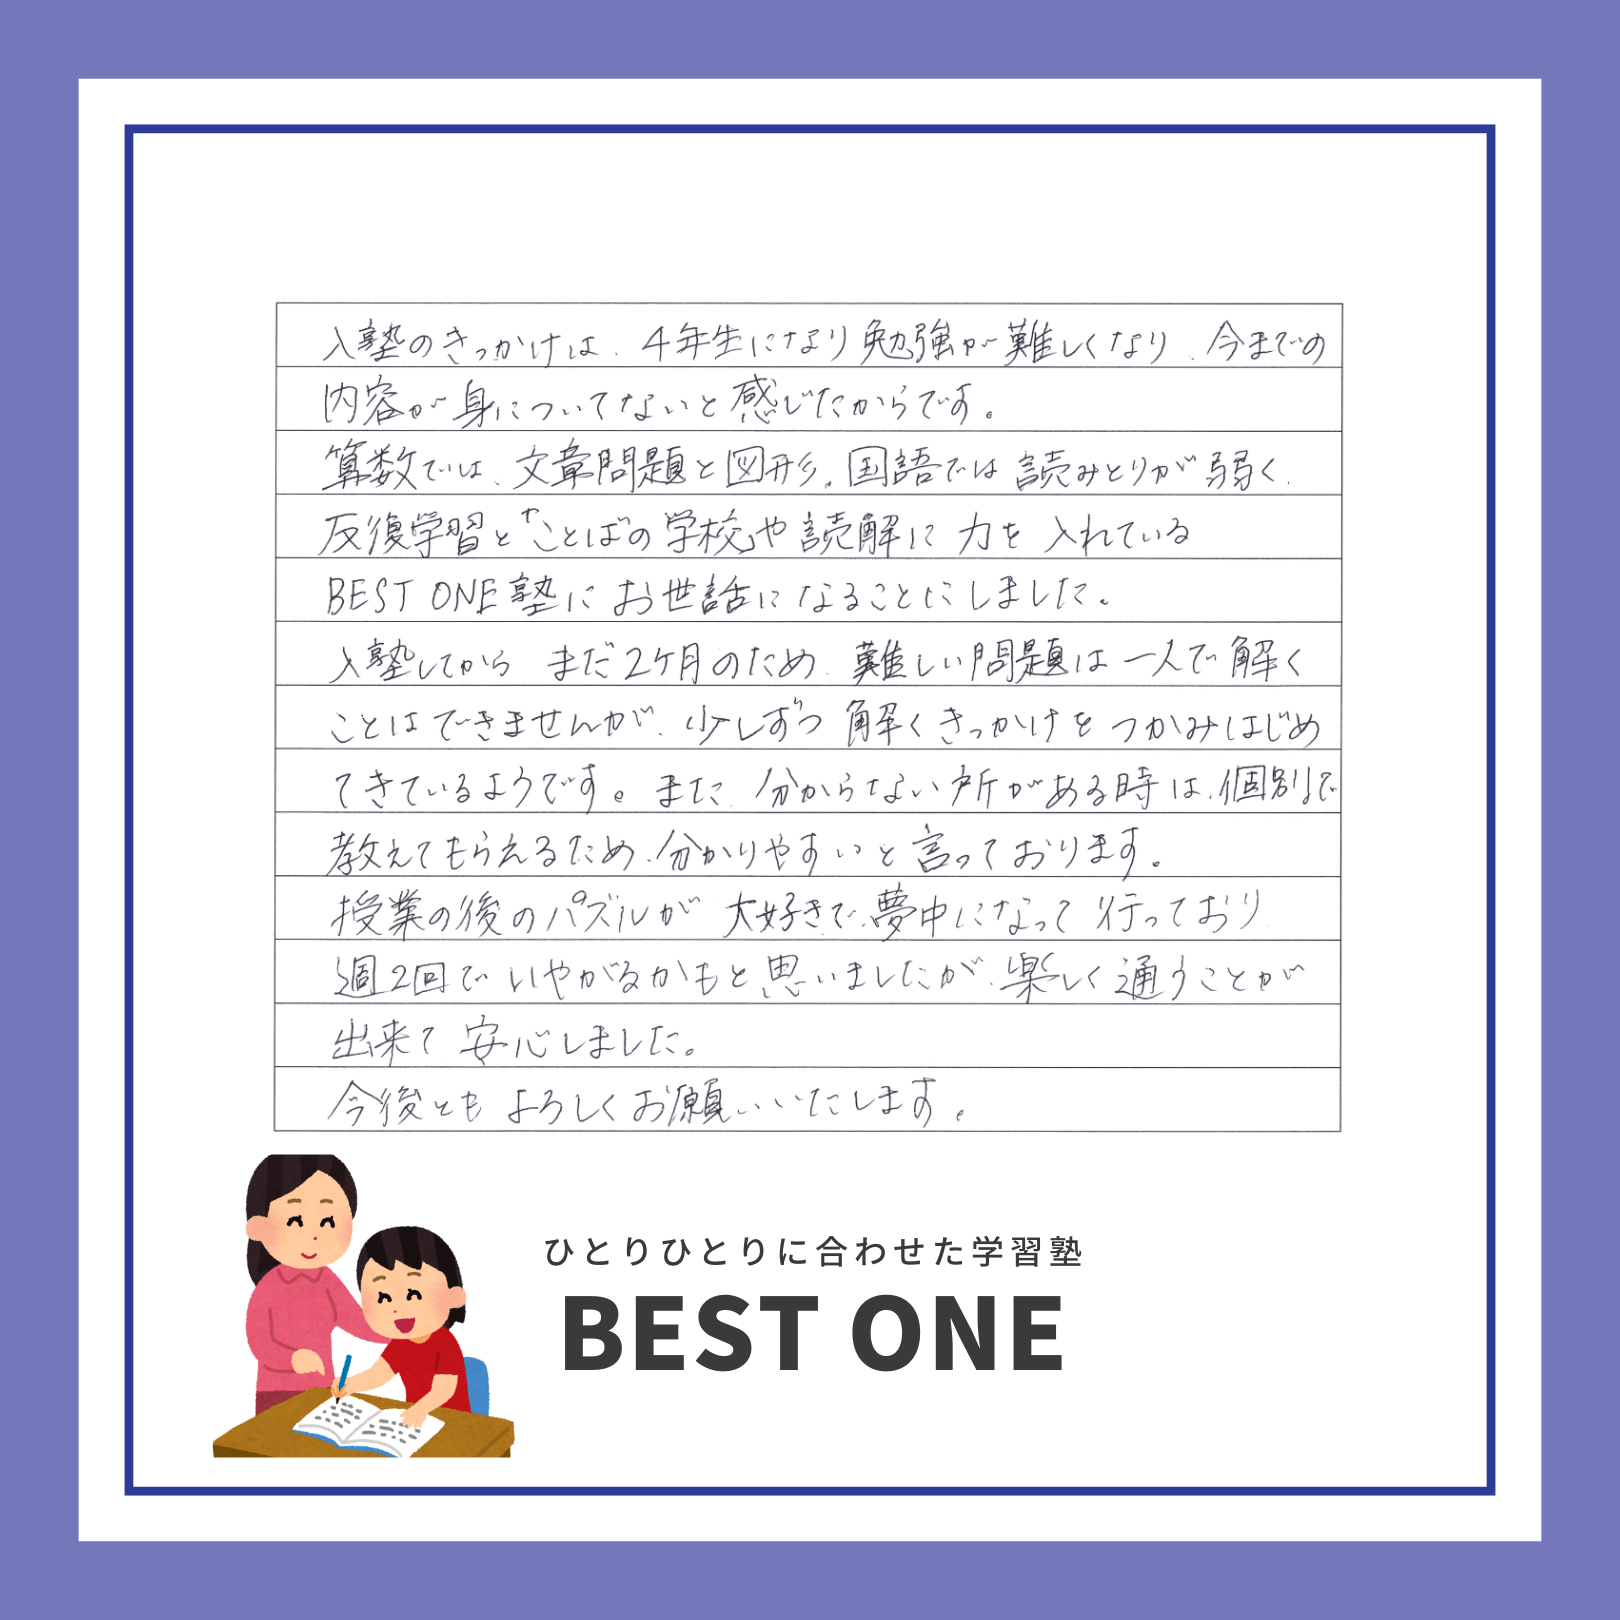 入塾のきっかけは、4年生になり勉強が難しくなり、今までの
内容が身についてないと感じたからです。
算数では、文章問題と図形。国語では読みとりが弱く、
反復学習と「ことばの学校」や読解に力を入れている
BEST ONE塾にお世話になることにしました。
入塾してから まだ2ケ月のため、難しい問題は一人で解く
ことはできませんが、少しずつ解くきっかけをつかみはじめ
てきているようです。また、分からない所がある時は、個別で
教えてもらえるため、分かりやすいと言っております。
授業の後のパズルが大好きで、夢中になって行っており
週2回でいやがるかもと思いましたが、楽しく通うことが
出来て安心しました。
今後ともよろしくお願いいたします。
ひとりひとりに合わせた学習塾
BEST ONE